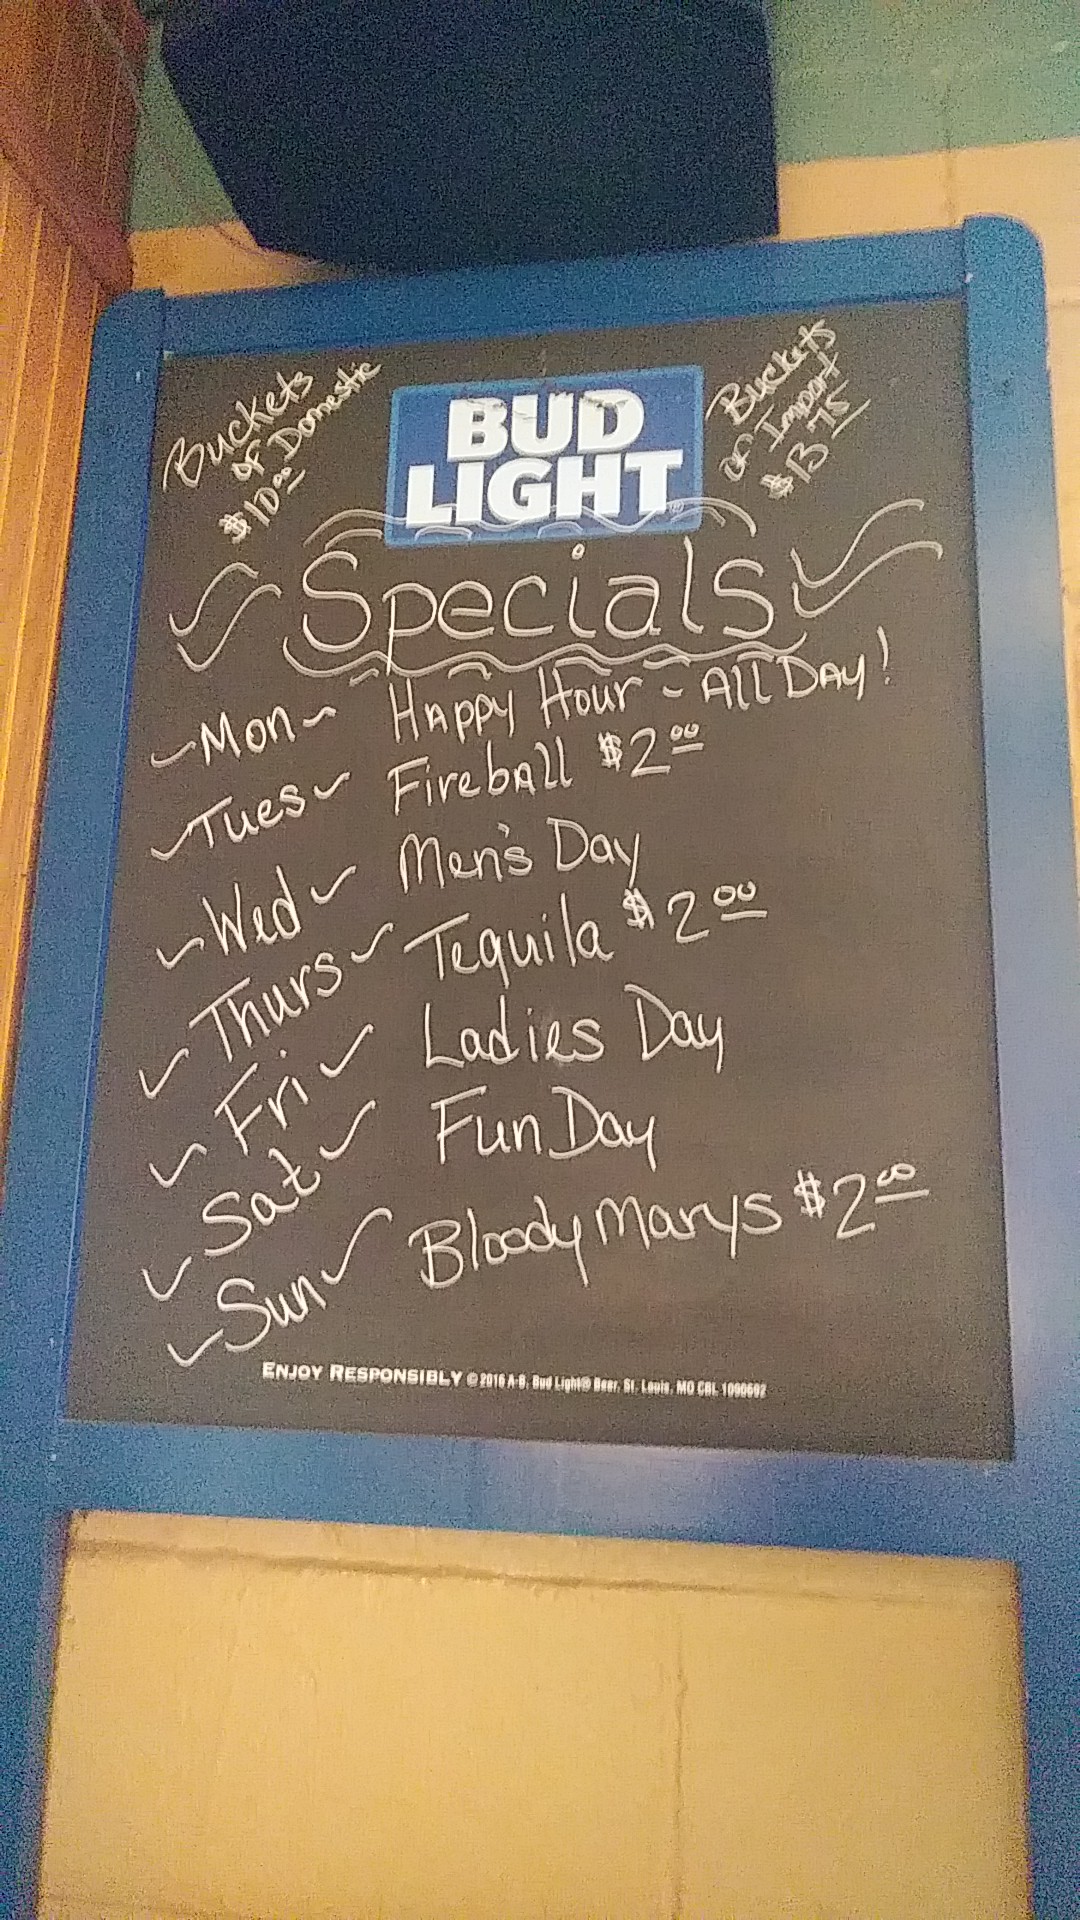 Buckets
of Domestic
$10.00
BUD
LIGHT
Buckets
of Import
$13.75
Specials
Mon ~ Happy Hour - All Day!
Tues ~ Fireball $2.00
Wed ~ Men's Day
Thurs ~ Tequila $2.00
Fri ~ Ladies Day
Sat ~ Fun Day
Sun ~ Bloody Marys $2.00
ENJOY RESPONSIBLY © 2016 A-B, Bud Light® Beer, St. Louis, MO CBL 1000692